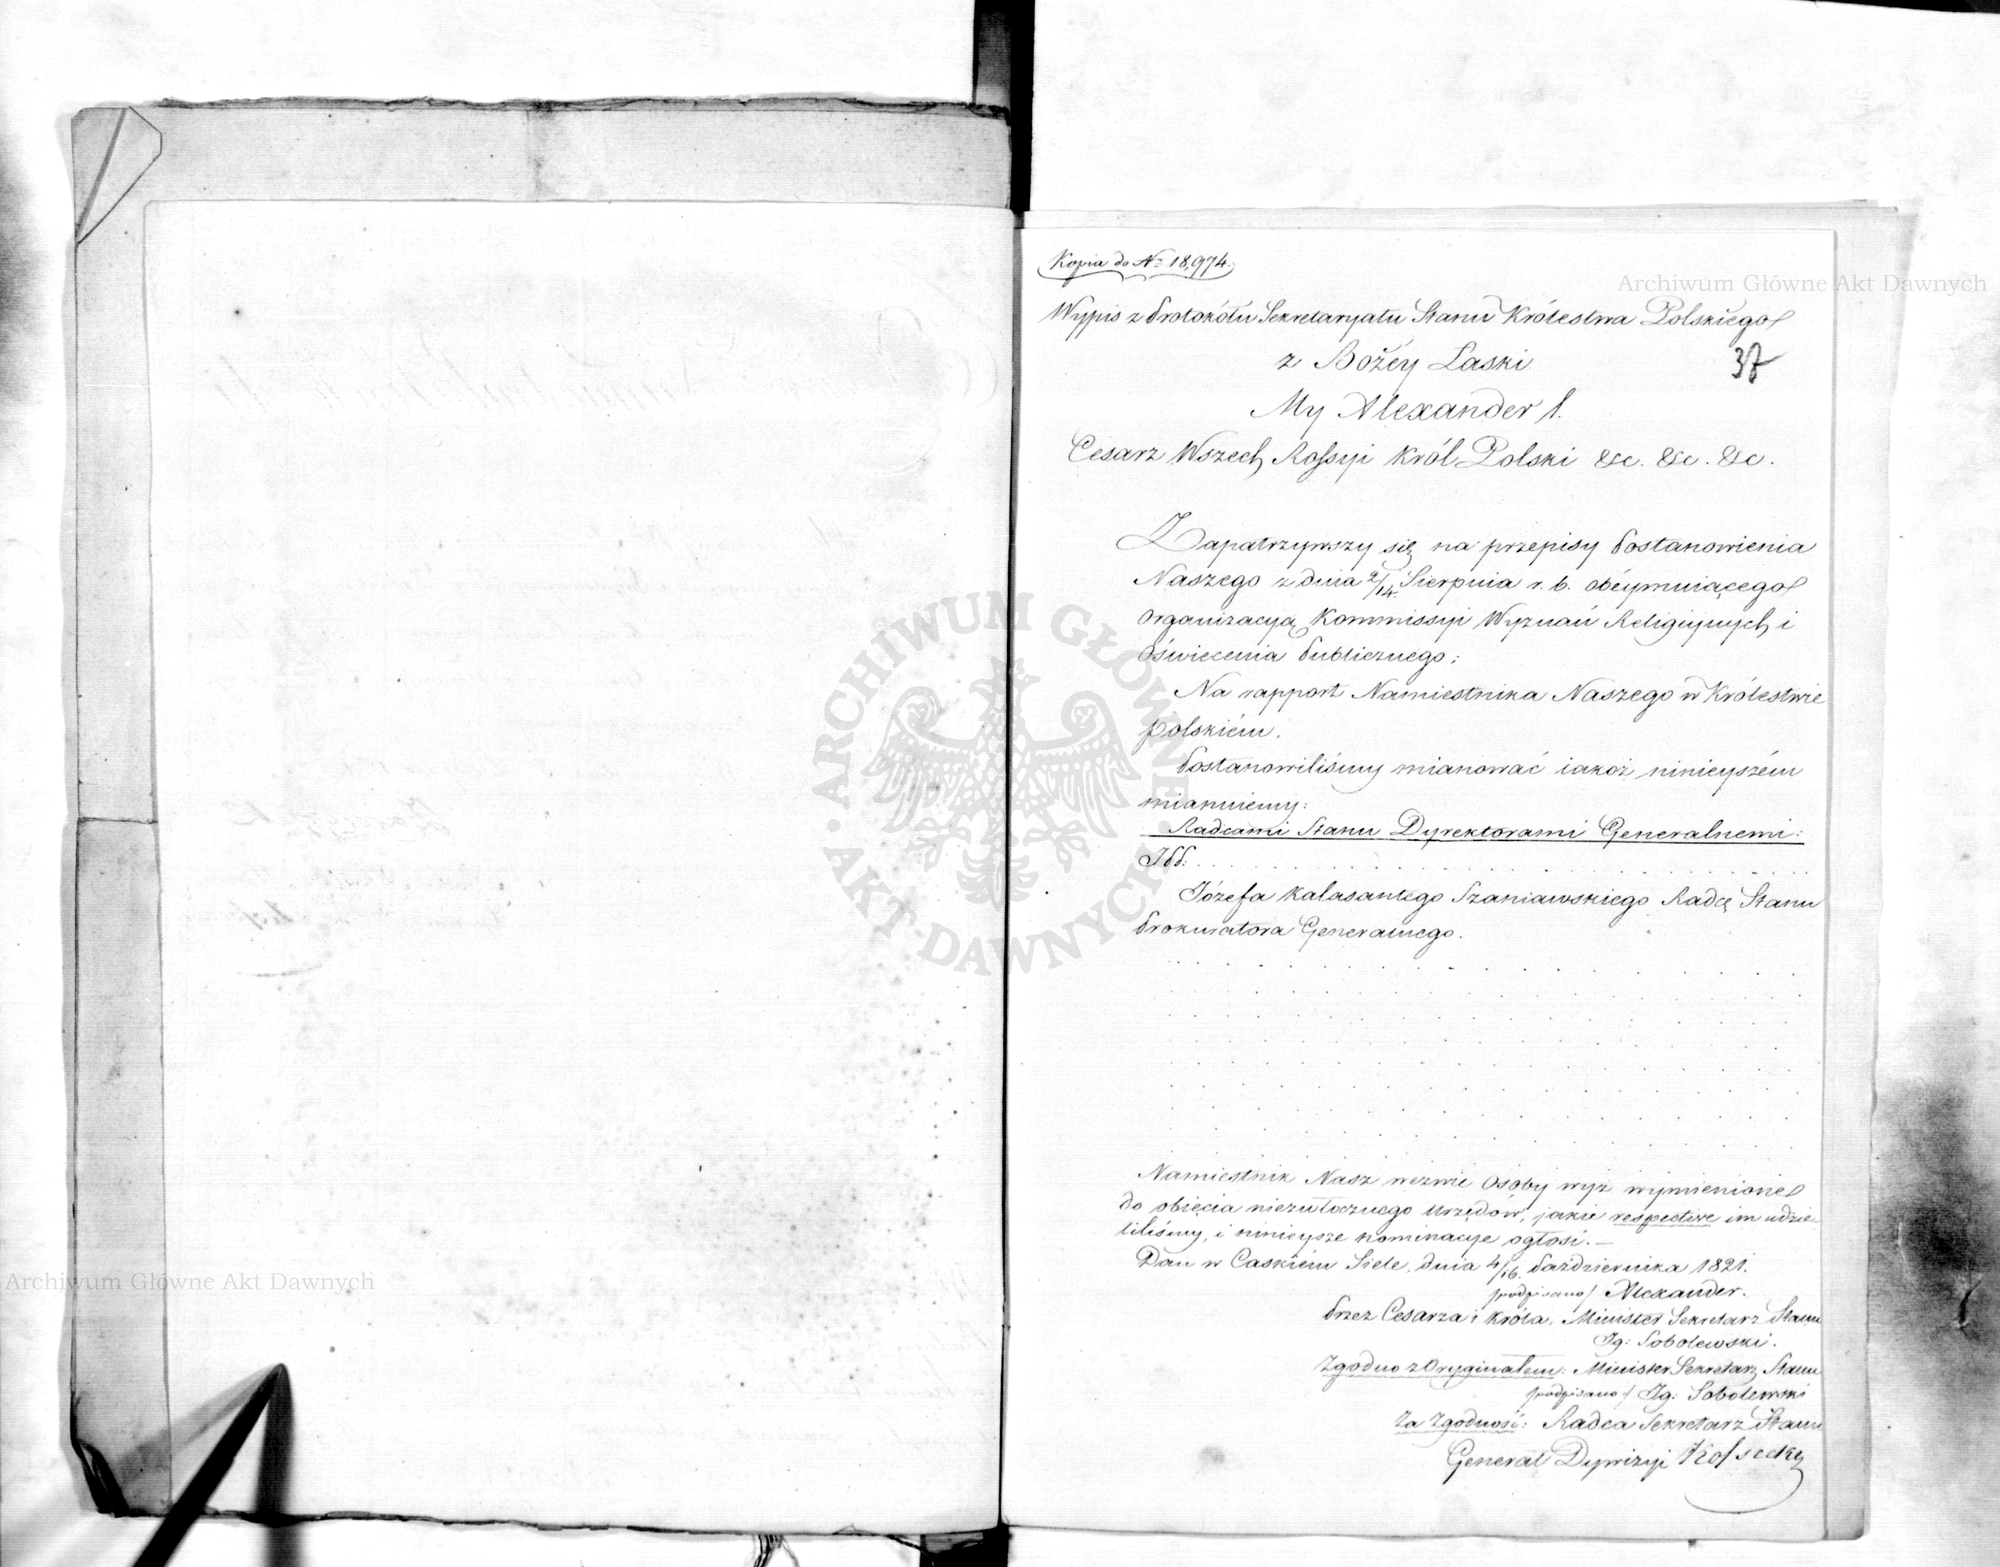 Kopia do Nº 18,974.
Wypis z Protokółu Sekretaryatu Stanu Królestwa Polskiego
37
z Bożéy Łaski
My Alexander I.
Cesarz Wszech Rossyi Król Polski &c. &c. &c.
Zapatrzywszy się na przepisy Postanowienia
Naszego z dnia 2/14. Sierpnia r. b. obéymuiącego
organizacyą Kommissyi Wyznań Religiynych i
Oświecenia Publicznego;
Na rapport Namiestnika Naszego w Królestwie
Polskiém.
Postanowiliśmy mianować iakoż ninieyszém
mianuiemy:
Radcami Stanu Dyrektorami Generalnemi:
JPP:
Józefa Kalasantego Szaniawskiego Radcę Stanu
Prokuratora Generalnego.
Namiestnik Nasz wezwie osoby wyż wymienione
do obięcia niezwłocznego urzędów, jakie respective im udzie-
liliśmy, i ninieysze nominacye ogłosi. —
Dan w Carskiém Siele, dnia 4/16. Października 1821.
/podpisano/ Alexander.
Przez Cesarza i Króla. Minister Sekretarz Stanu
Ig: Sobolewski.
Zgodno z Oryginałem: Minister Sekretarz Stanu
/podpisano/ Ig: Sobolewski
Za Zgodność: Radca Sekretarz Stanu
Generał Dywizyi Kossecki
Archiwum Główne Akt Dawnych
ARCHIWUM GŁÓWNE
AKT DAWNYCH
Archiwum Główne Akt Dawnych